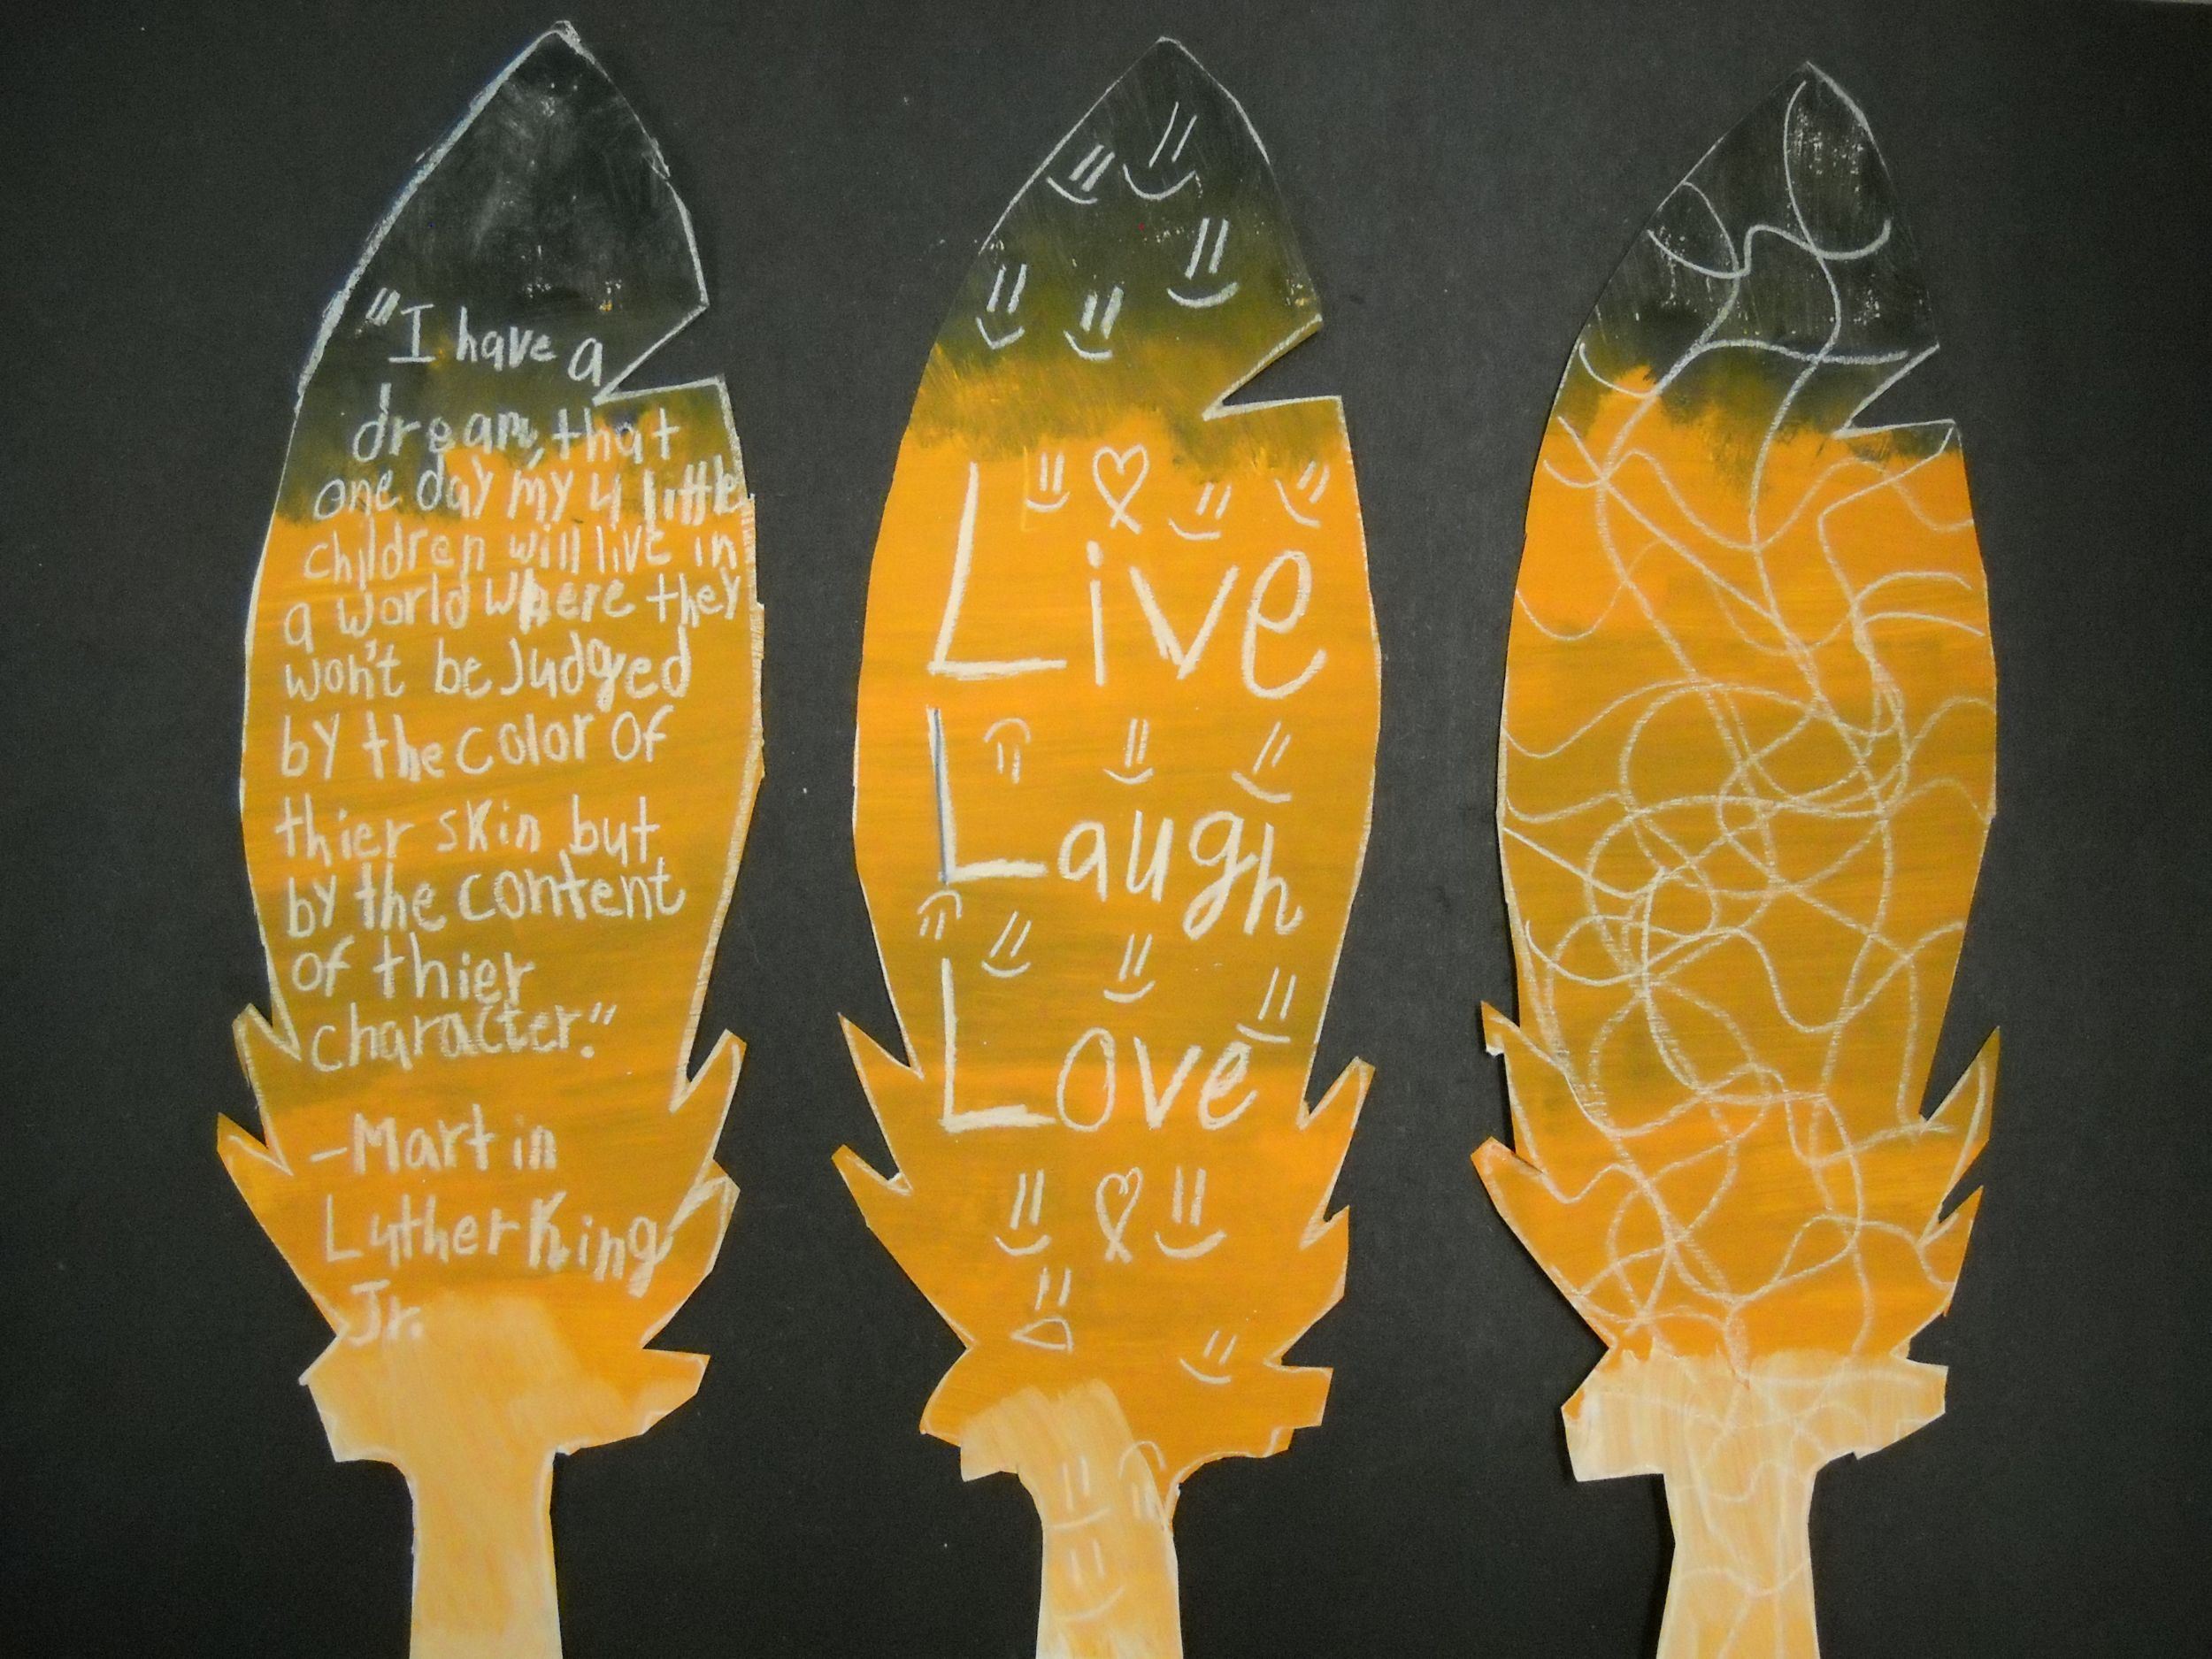 "I have a
dream, that
one day my 4 little
children will live in
a world where they
won't be Judged
by the color of
thier skin but
by the content
of thier
character."
-Martin
Luther King
Jr.
Live
Laugh
Love